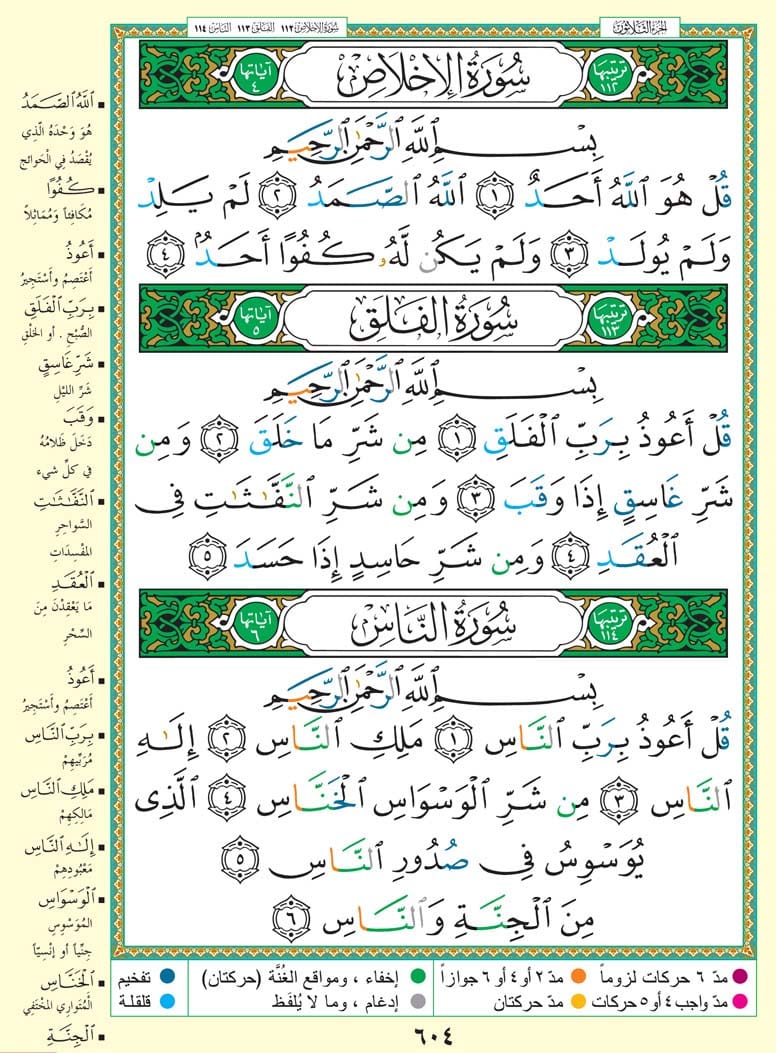 الجزء الثلاثون
سورة الإخلاص ١١٢ الفلق ١١٣ الناس ١١٤
ترتيبها ١١٢ سُورَةُ الإِخْلَاصِ آياتها ٤
بِسْمِ ٱللَّهِ ٱلرَّحْمَٰنِ ٱلرَّحِيمِ
قُلْ هُوَ ٱللَّهُ أَحَدٌ ١ ٱللَّهُ ٱلصَّمَدُ ٢ لَمْ يَلِدْ
وَلَمْ يُولَدْ ٣ وَلَمْ يَكُن لَّهُۥ كُفُوًا أَحَدٌۢ ٤
ترتيبها ١١٣ سُورَةُ الفَلَقِ آياتها ٥
بِسْمِ ٱللَّهِ ٱلرَّحْمَٰنِ ٱلرَّحِيمِ
قُلْ أَعُوذُ بِرَبِّ ٱلْفَلَقِ ١ مِن شَرِّ مَا خَلَقَ ٢ وَمِن
شَرِّ غَاسِقٍ إِذَا وَقَبَ ٣ وَمِن شَرِّ ٱلنَّفَّٰثَٰتِ فِى
ٱلْعُقَدِ ٤ وَمِن شَرِّ حَاسِدٍ إِذَا حَسَدَ ٥
ترتيبها ١١٤ سُورَةُ النَّاسِ آياتها ٦
بِسْمِ ٱللَّهِ ٱلرَّحْمَٰنِ ٱلرَّحِيمِ
قُلْ أَعُوذُ بِرَبِّ ٱلنَّاسِ ١ مَلِكِ ٱلنَّاسِ ٢ إِلَٰهِ
ٱلنَّاسِ ٣ مِن شَرِّ ٱلْوَسْوَاسِ ٱلْخَنَّاسِ ٤ ٱلَّذِى
يُوَسْوِسُ فِى صُدُورِ ٱلنَّاسِ ٥
مِنَ ٱلْجِنَّةِ وَٱلنَّاسِ ٦
ٱللَّهُ ٱلصَّمَدُ
هُوَ وَحْدَهُ الَّذِي
يُقْصَدُ فِي الحَوائج
كُفُوًا
مُكَافِئاً وَمُمَاثِلاً
أَعُوذُ
أَعْتَصِمُ وأَسْتَجِيرُ
بِرَبِّ ٱلْفَلَقِ
الصُّبْحِ . أو الخَلْقِ
شَرِّ غَاسِقٍ
شَرِّ اللَّيْلِ
وَقَبَ
دَخَلَ ظَلامُهُ
في كلِّ شيء
ٱلنَّفَّٰثَٰتِ
السَّواحِرِ
المُفْسِدَاتِ
ٱلْعُقَدِ
مَا يَعْقِدْنَ مِنَ
السِّحْرِ
أَعُوذُ
أَعْتَصِمُ وأَسْتَجِيرُ
بِرَبِّ ٱلنَّاسِ
مُرَبِّيهِمْ
مَلِكِ ٱلنَّاسِ
مَالِكِهِمْ
إِلَٰهِ ٱلنَّاسِ
مَعْبُودِهِمْ
ٱلْوَسْوَاسِ
المُوَسْوِسِ
جِنِّيّاً أو إنْسِيّاً
ٱلْخَنَّاسِ
المُتَوَارِي المُخْتَفِي
ٱلْجِنَّةِ
مدّ ٦ حركات لزوماً مدّ ٢ أو ٤ أو ٦ جوازاً إخفاء ، ومواقع الغُنَّة (حركتان) تفخيم
مدّ واجب ٤ أو ٥ حركات مدّ حركتان إدغام ، وما لا يُلفَظ قلقلة
٦٠٤